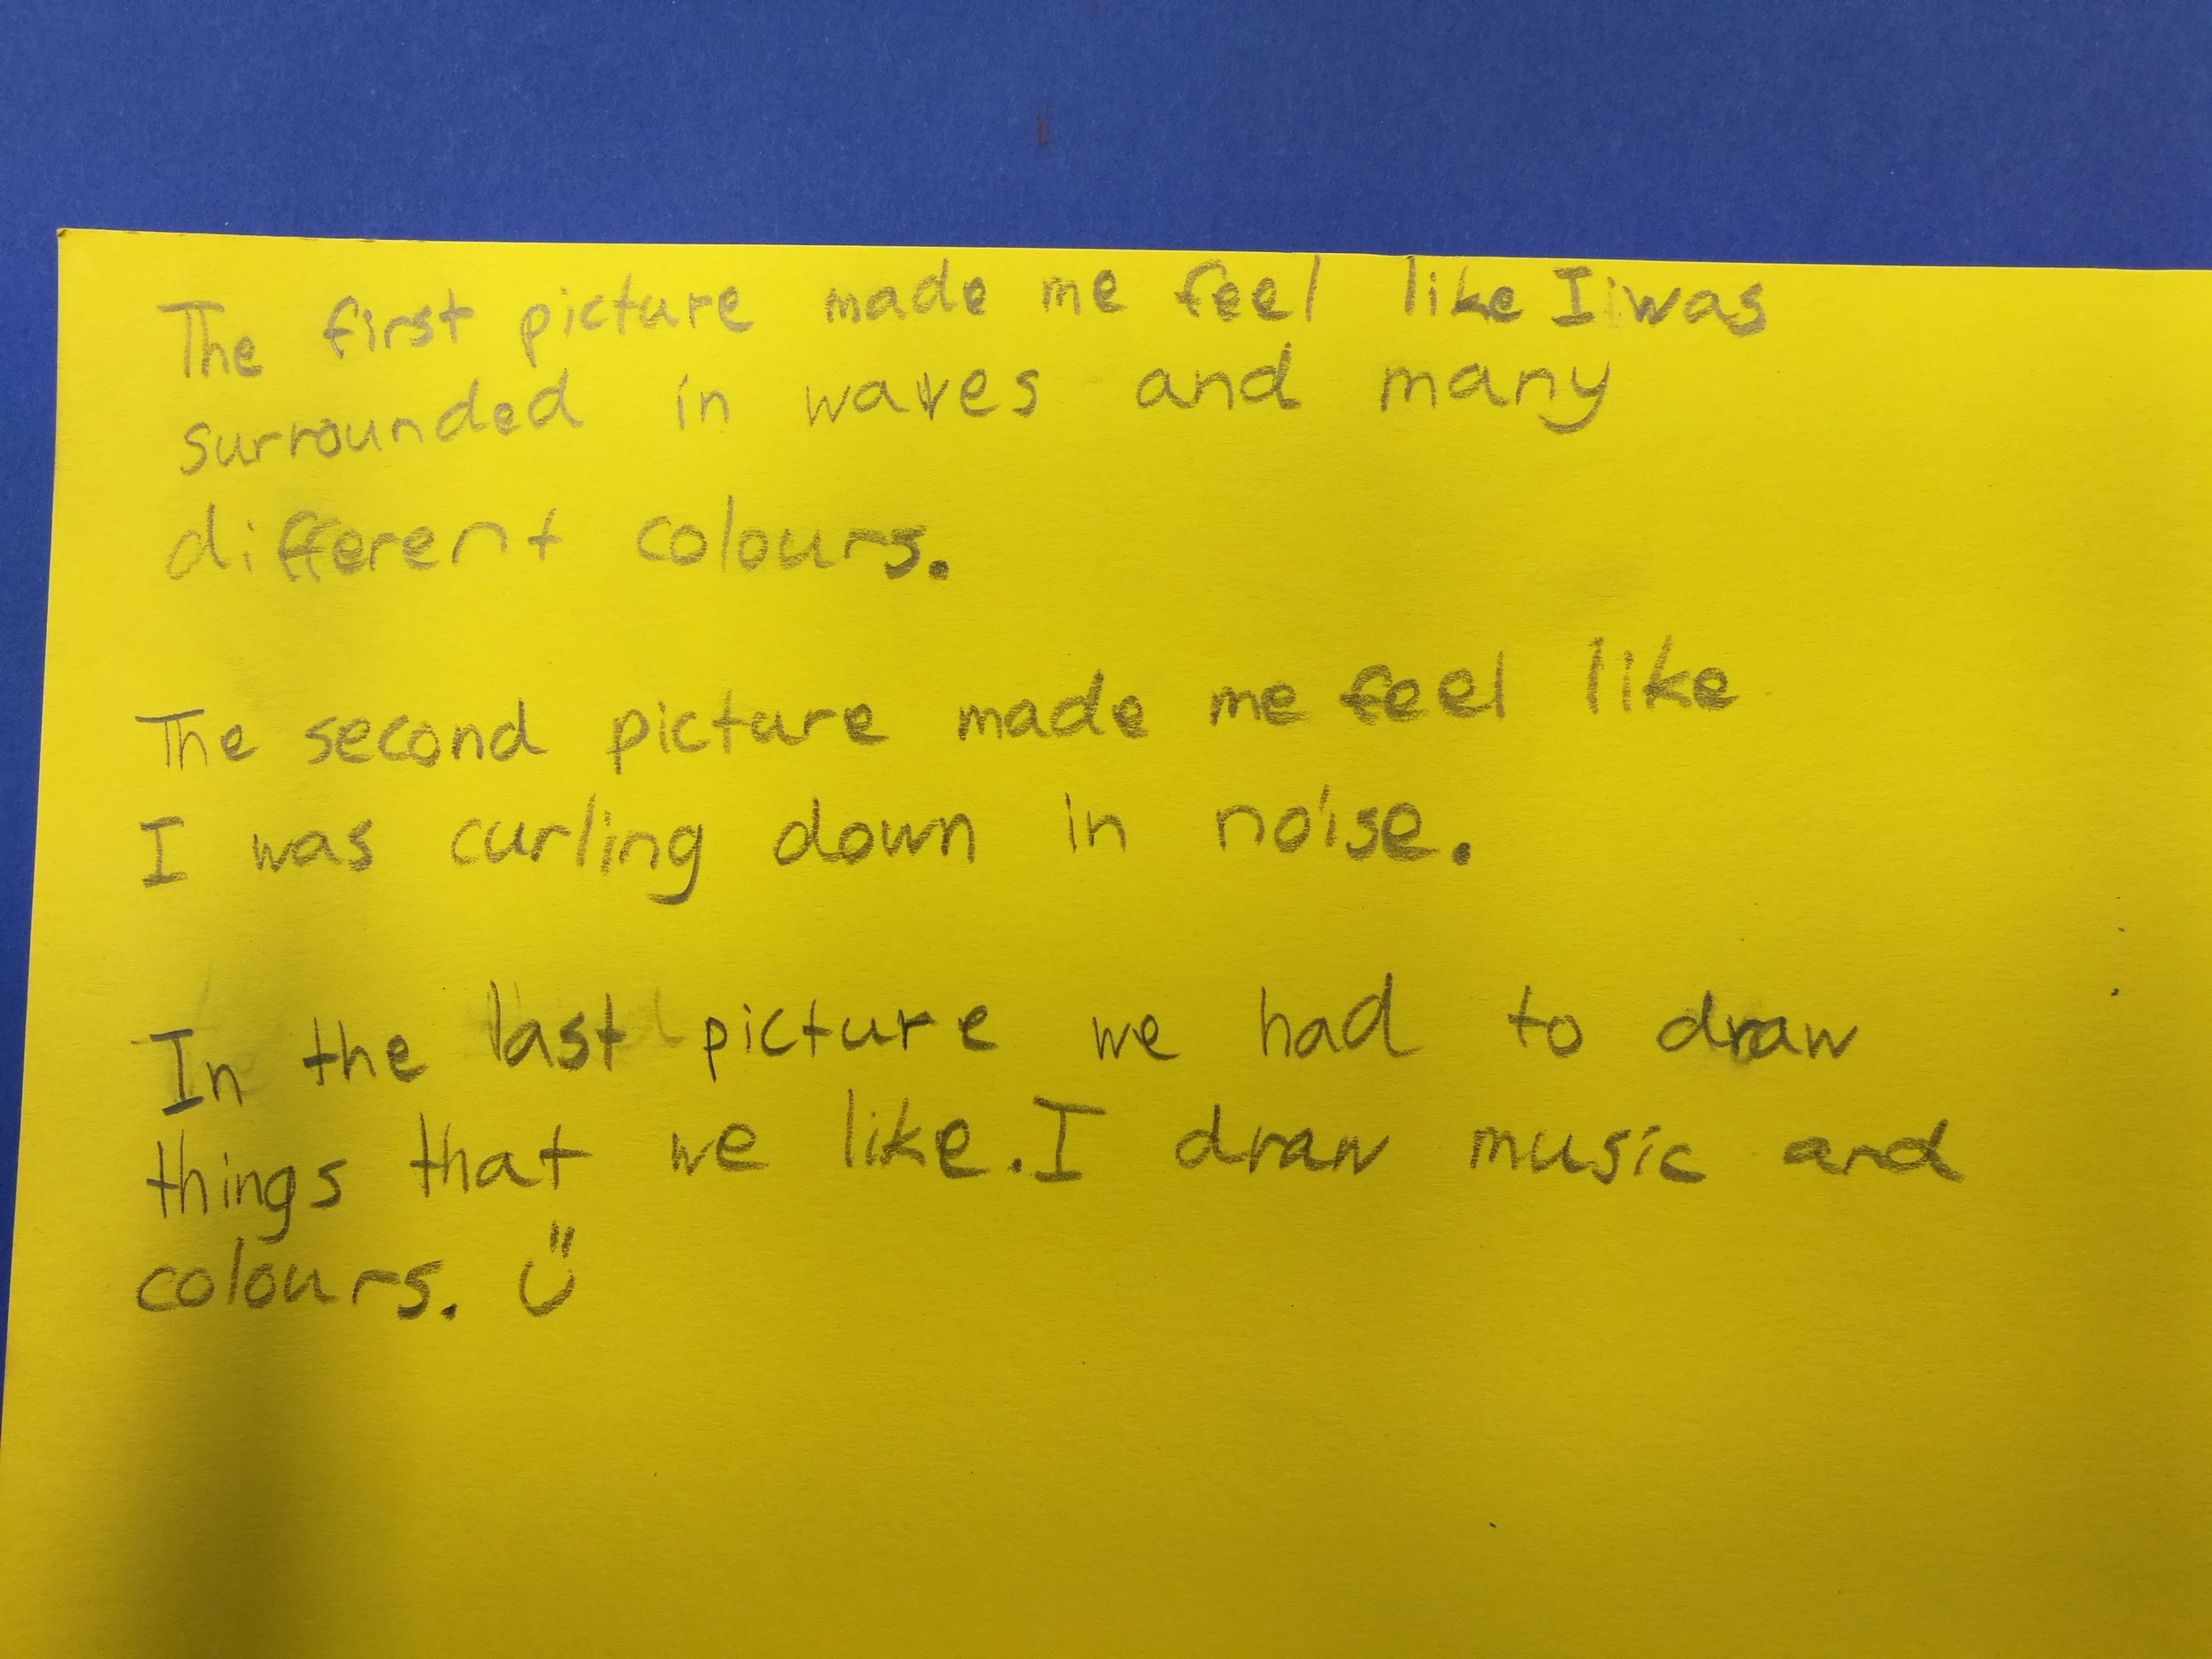 The first picture made me feel like I was
surrounded in waves and many
different colours.
The second picture made me feel like
I was curling down in noise.
In the last picture we had to draw
things that we like. I draw music and
colours.